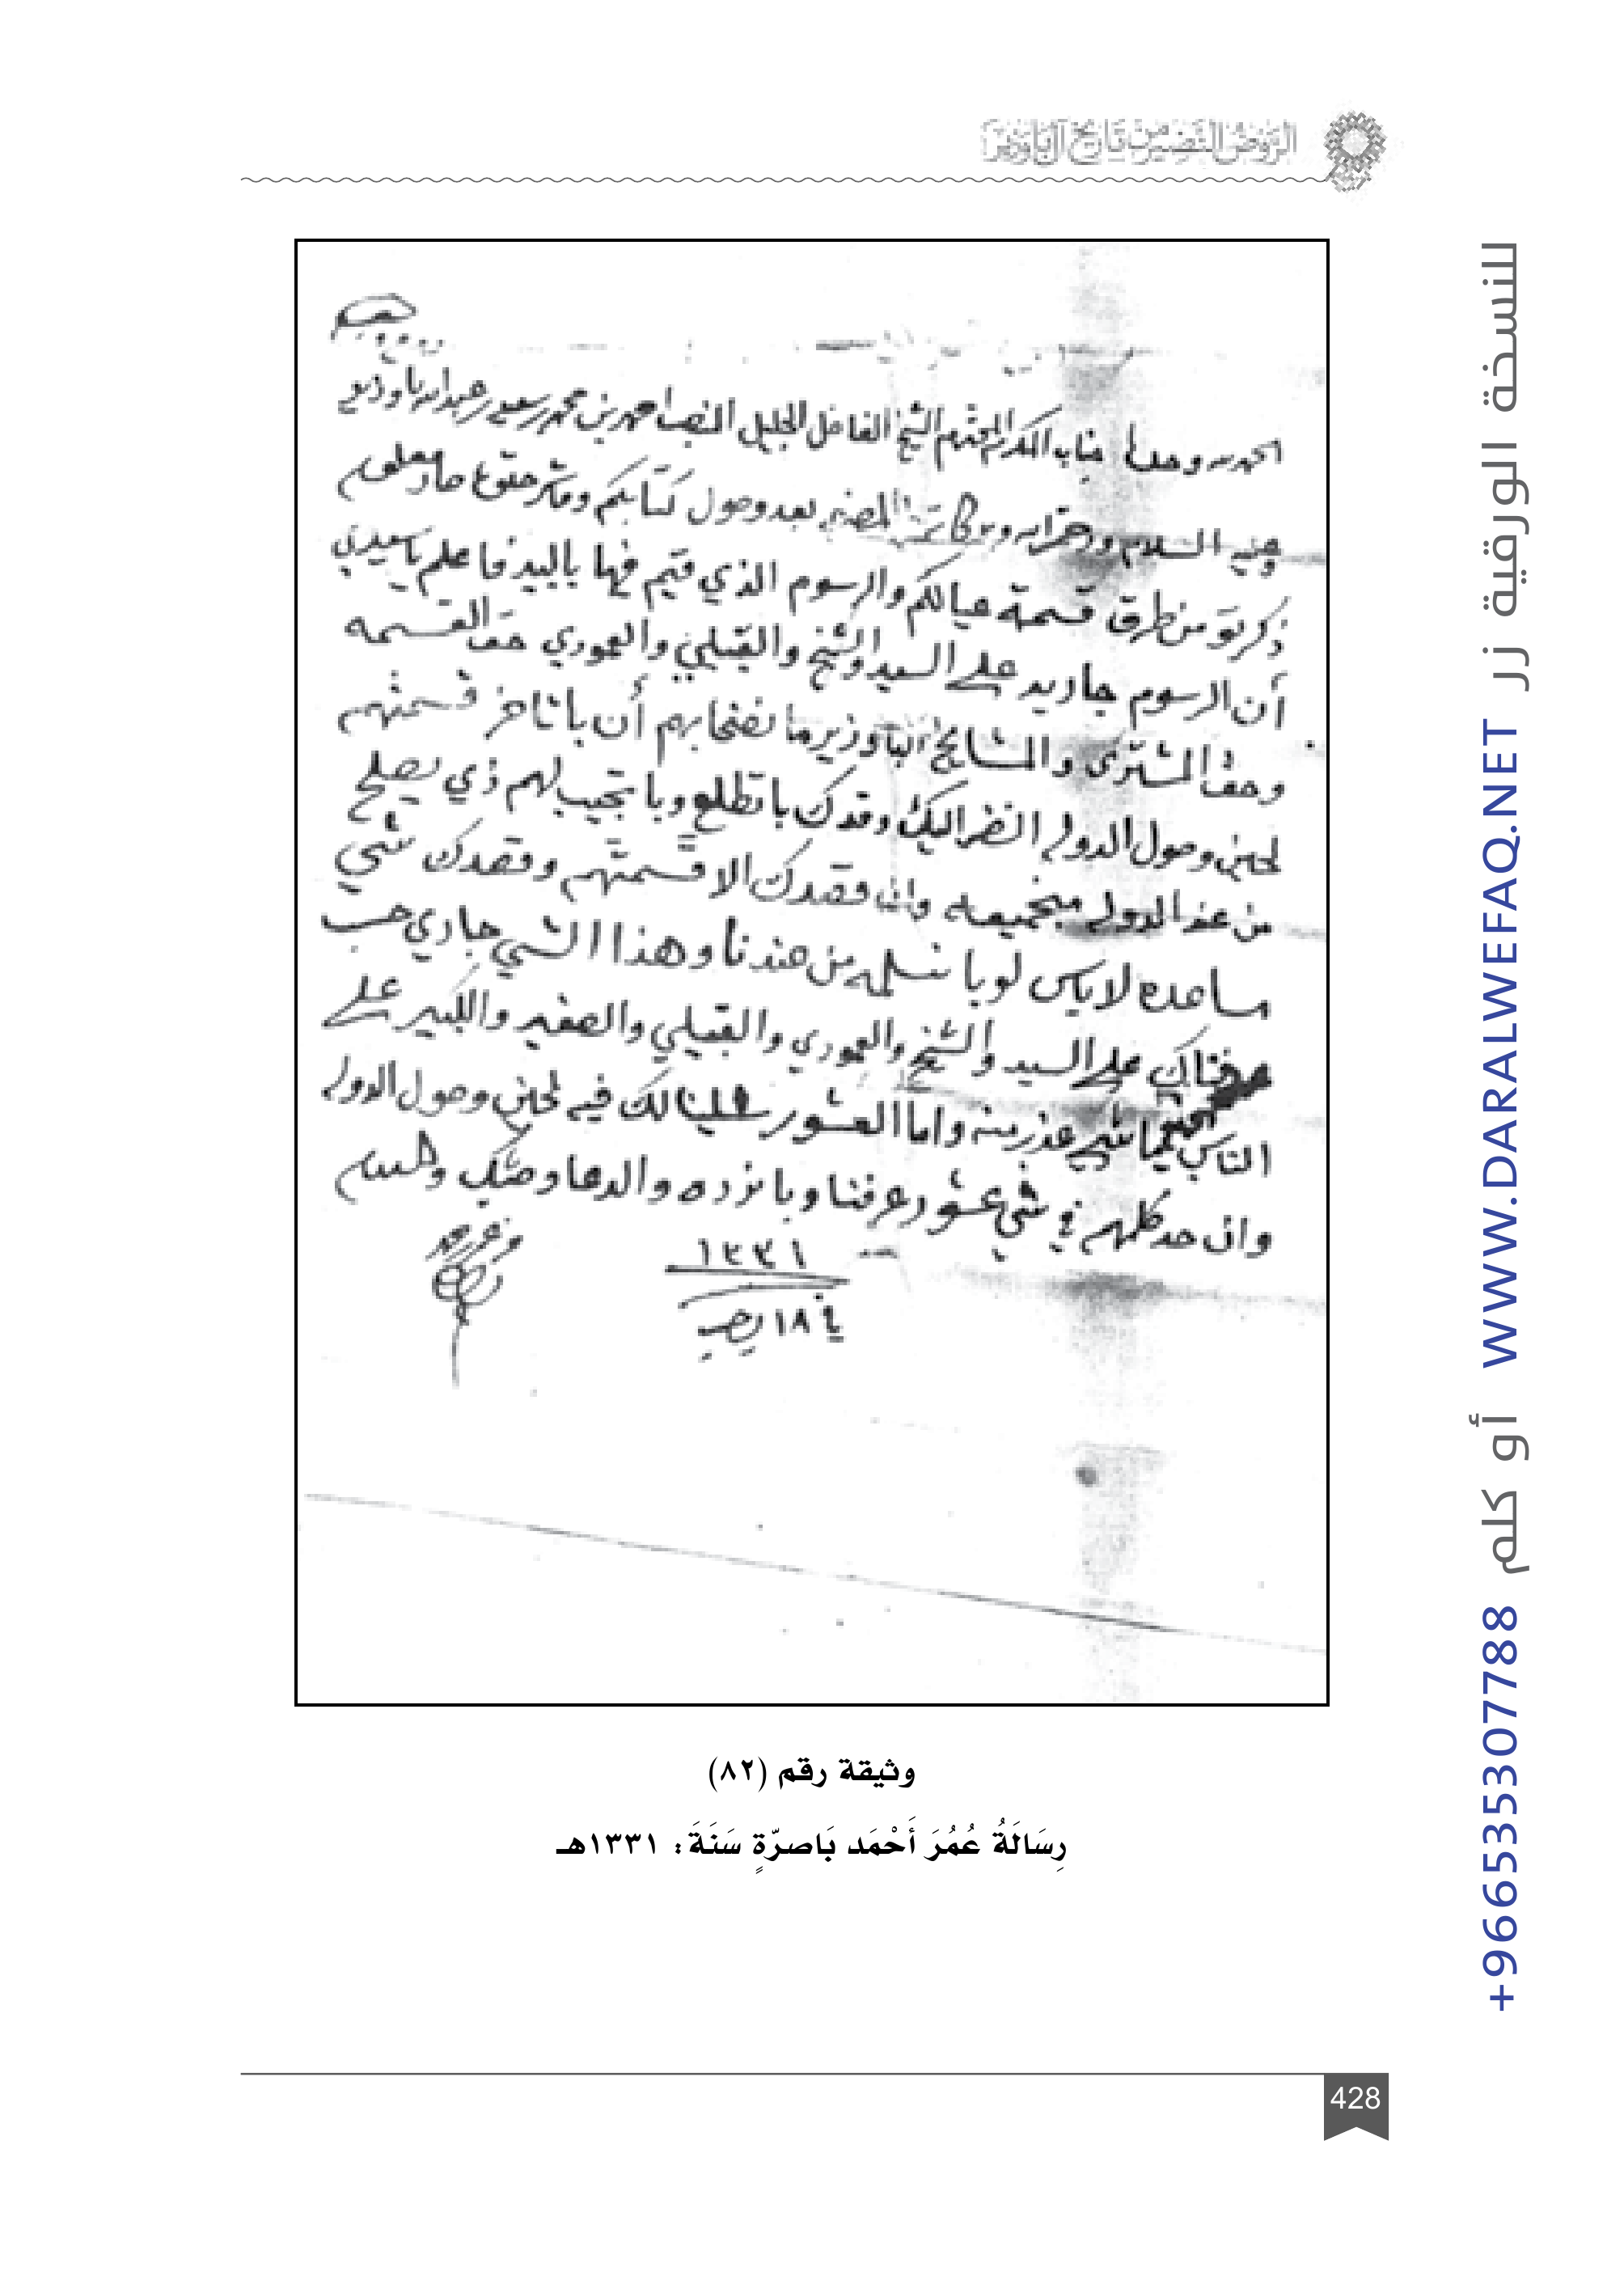 الروض النضير من تاريخ آل باوزير
الحمد لله وحده جناب المكرم المحترم الشيخ الفاضل الجليل المنصب احمد بن محمد بن سعيد بن عبدالله باوزير
السلام ورحمة الله وبركاته بعد وصول كتابكم وما ذكرتوا صار معلوم
ذكرتوا من طرف قسمة عيالكم والرسوم الذي قيم فيها بالبيد فاعلم يا سيدي
أن الرسوم جاريه على السيد والشيخ والقبيلي والعمودي حق القسمه
وحق المشترى والمشايخ آل باوزير ما أن با تاخر قسمتهم
لحين وصول الدوله النظر اليك وقدك با تطلع وبا تجيب لهم ذي يصلح
من عند الدوله وان قصدك الا قسمتهم وقصدك شي
مساعده لا باس لو با نسلمه من عندنا وهذا الشي جاري حسب
عرفناك على السيد والشيخ والعمودي والقبيلي والصغير والكبير على
الناس واما العشور خلينا لك فيه لحين وصول الدوله
وان حد كلمهم في شي عشور عرفنا وبا نرده والدعا وصيتك والسلام
١٣٣١
١٨ رجب
وثيقة رقم (٨٢)
رِسَالَةُ عُمُرَ أَحْمَد بَاصرّةٍ سَنَةَ: ١٣٣١هـ
428
للنسخة الورقية زر WWW.DARALWEFAQ.NET أو كلم +966535307788